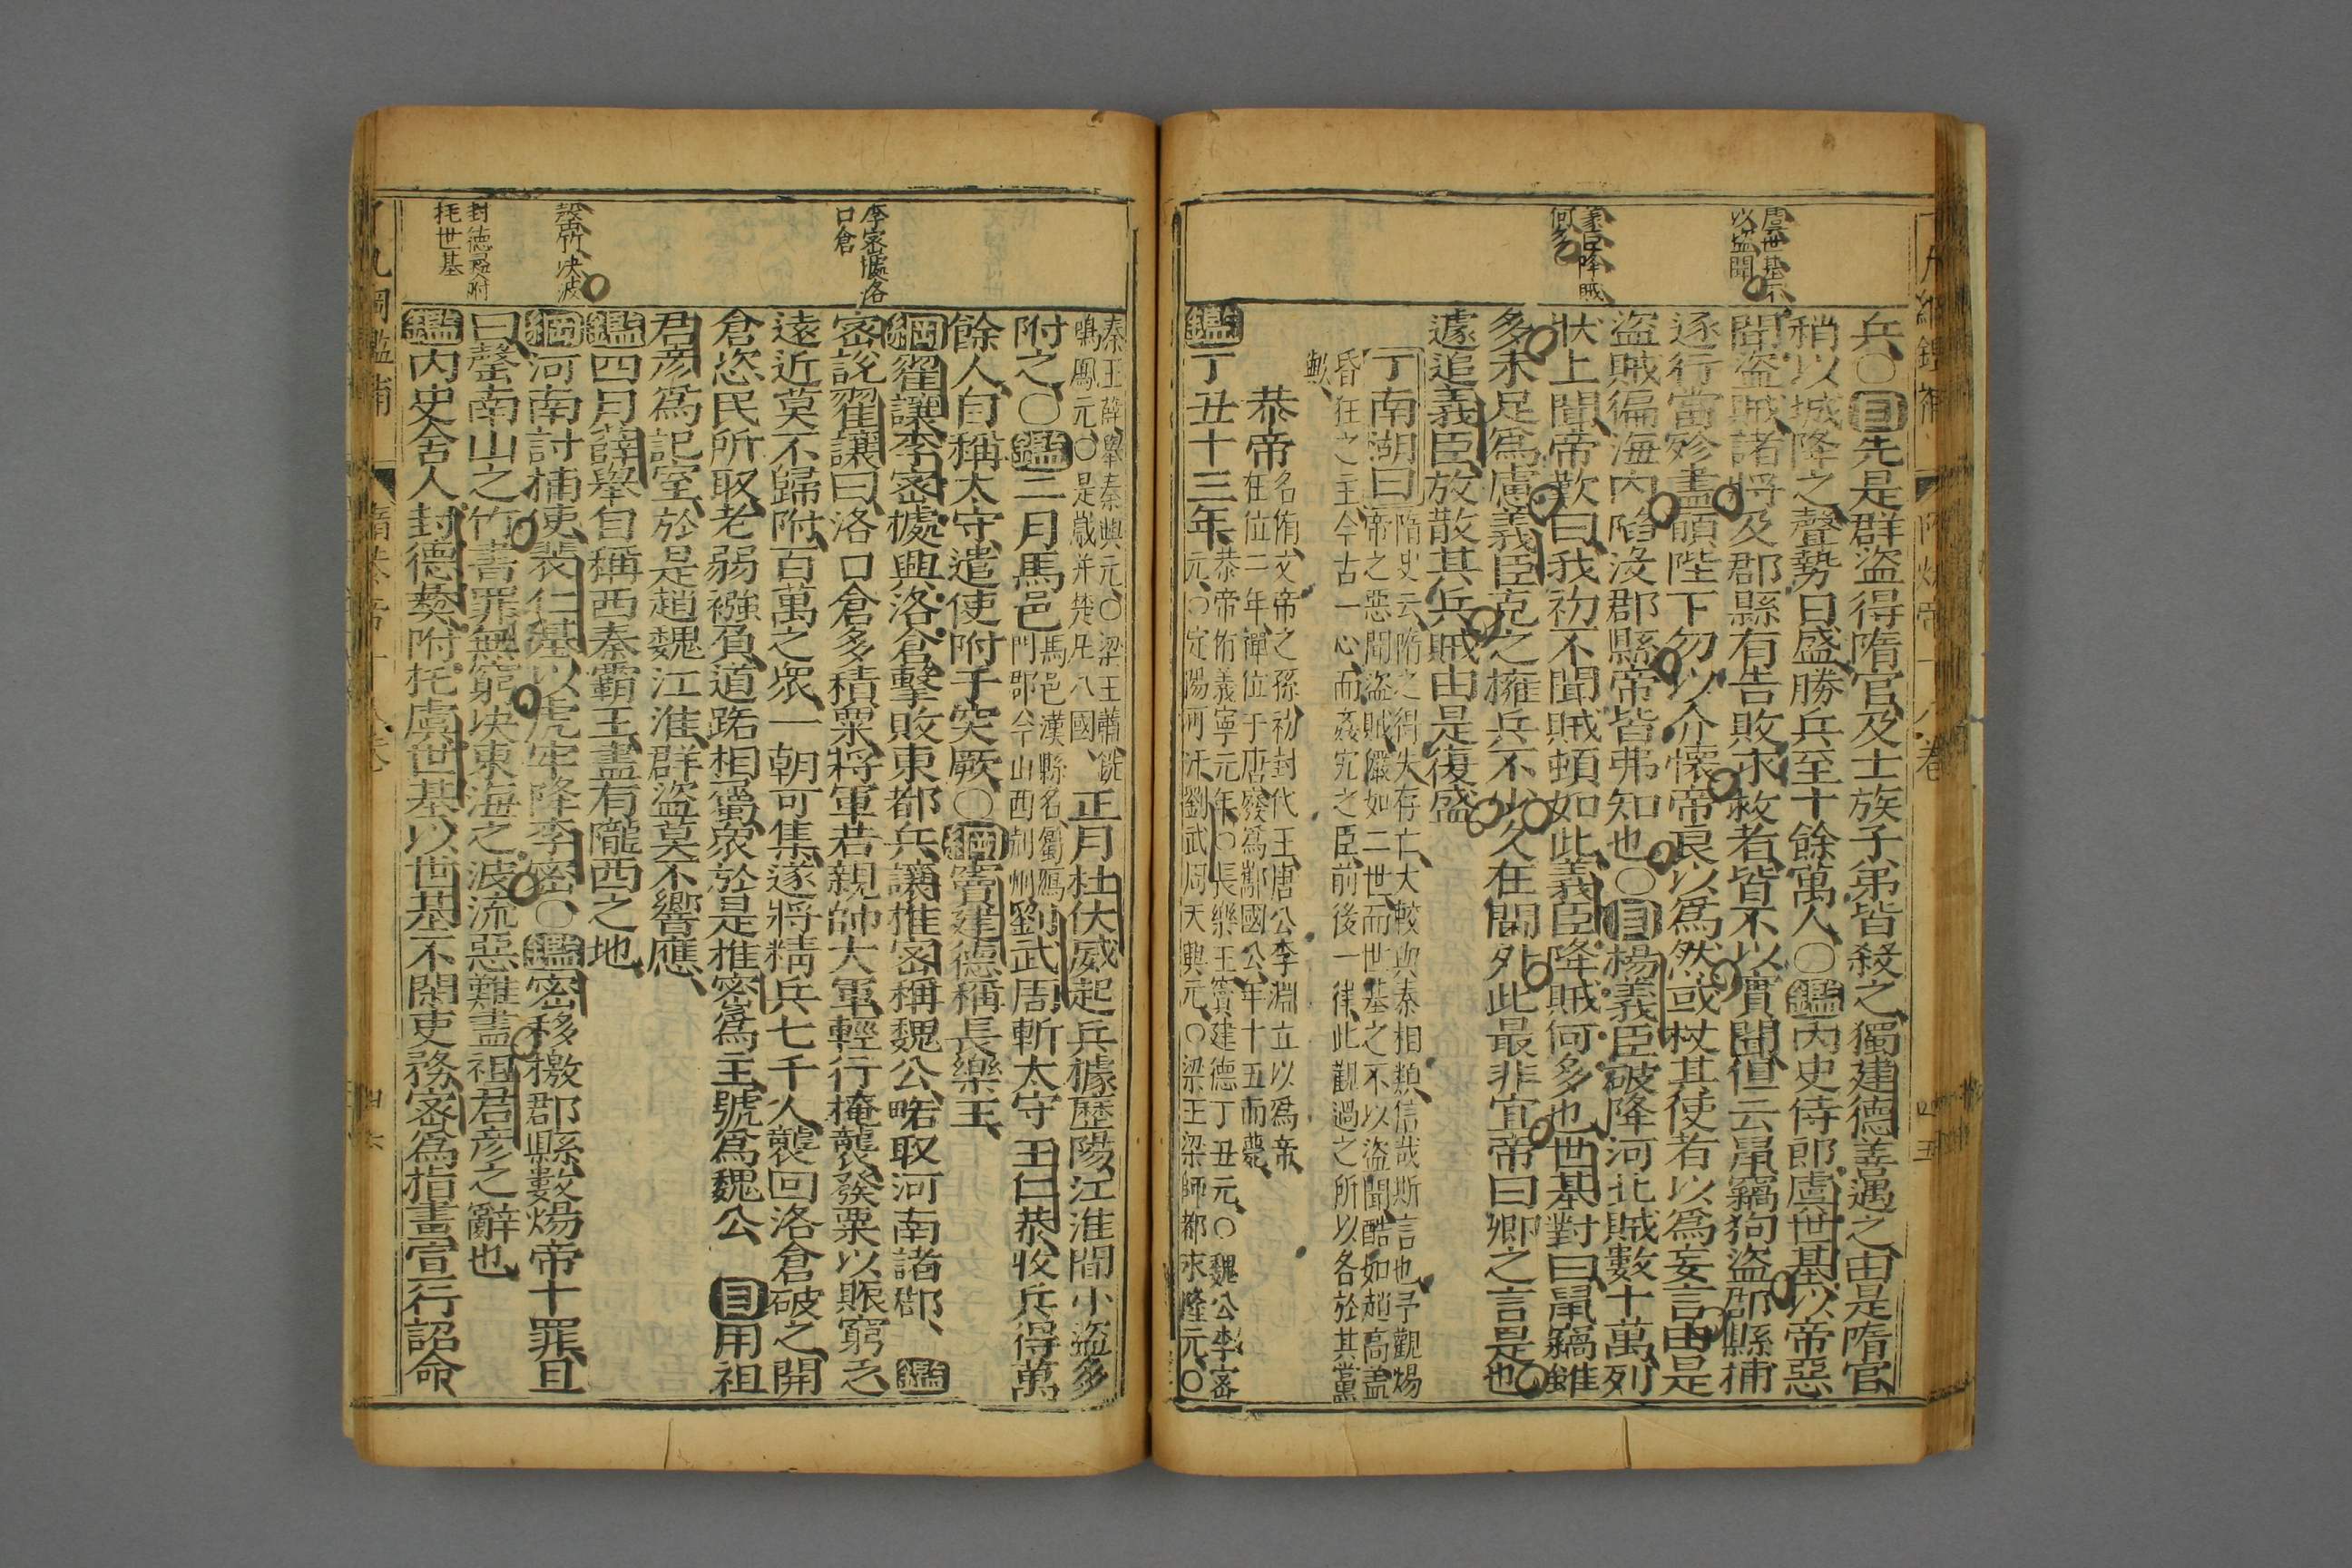 虞世基不
以盜聞
義臣降賊
何多
兵○目先是群盜得隋官及士族子弟皆殺之獨建德善遇之由是隋官
稍以城降之聲勢日盛勝兵至十餘萬人○鑑內史侍郎虞世基以帝惡
聞盜賊諸將及郡縣有告敗求救者皆不以實聞但云鼠竊狗盜郡縣捕
逐行當殄盡願陛下勿以介懷帝良以爲然或杖其使者以爲妄言由是
盜賊徧海內陷沒郡縣帝皆弗知也○目楊義臣破降河北賊數十萬列
狀上聞帝歎曰我初不聞賊頓如此義臣降賊何多也世基對曰鼠竊雖
多未足爲慮義臣克之擁兵不少久在閫外此最非宜帝曰卿之言是也
遽追義臣放散其兵賊由是復盛
丁南湖曰隋史云隋之得失存亡大較與秦相類信哉斯言也予觀煬
帝之惡聞盜賊儼如二世而世基之不以盜聞酷如趙高蓋
昏狂之主今古一心而姦宄之臣前後一律此觀過之所以各於其黨
歟
恭帝名侑文帝之孫初封代王唐公李淵立以爲帝
在位二年禪位于唐廢爲酅國公年十五而薨
鑑丁丑十三年恭帝侑義寧元年○長樂王竇建德丁丑元○魏公李密
元○定陽可汗劉武周天興元○梁王梁師都永隆元○
李密據洛
口倉
罄竹決波
封德彝附
托世基
秦王薛舉秦興元○梁王蕭銑
鳴鳳元○是歲并楚凡八國正月杜伏威起兵據歷陽江淮間小盜多
附之○鑑二月馬邑馬邑漢縣名屬鴈
門郡今山西朔州劉武周斬太守王仁恭收兵得萬
餘人自稱太守遣使附于突厥○綱竇建德稱長樂王
綱翟讓李密據興洛倉擊敗東都兵讓推密稱魏公略取河南諸郡鑑
密說翟讓曰洛口倉多積粟將軍若親帥大軍輕行掩襲發粟以賑窮乏
遠近莫不歸附百萬之衆一朝可集遂將精兵七千人襲回洛倉破之開
倉恣民所取老弱襁負道路相屬衆於是推密爲主號爲魏公目用祖
君彥爲記室於是趙魏江淮群盜莫不響應
鑑四月薛舉自稱西秦霸王盡有隴西之地
綱河南討捕使裴仁基以虎牢降李密○鑑密移檄郡縣數煬帝十罪且
曰罄南山之竹書罪無窮決東海之波流惡難盡祖君彥之辭也
鑑內史舍人封德彝附托虞世基以世基不閑吏務密爲指畫宣行詔命